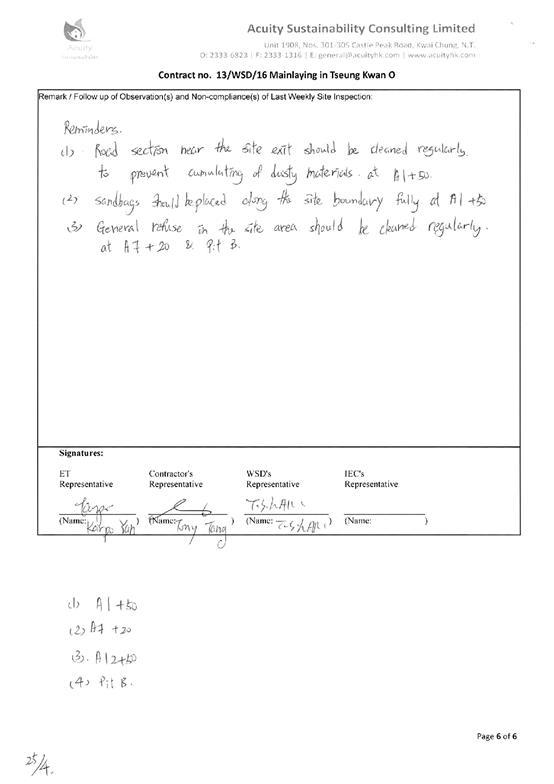 Acuity
Acuity Sustainability Consulting Limited
Unit 1908, Nos. 301-305 Castle Peak Road, Kwai Chung, N.T.
O: 2333-6823 | F: 2333-1316 | E: general@acuityhk.com | www.acuityhk.com
Contract no. 13/WSD/16 Mainlaying in Tseung Kwan O
Remark / Follow up of Observation(s) and Non-compliance(s) of Last Weekly Site Inspection:
Reminders.
(1). Road section near the site exit should be cleaned regularly.
to prevent cumulating of dusty materials. at A1+50.
(2) Sandbags should be placed along the site boundary fully at A1 +50
(3) General refuse in the site area should be cleaned regularly.
at A7 + 20 & Pit B.
Signatures:
ET Contractor's WSD's IEC's
Representative Representative Representative Representative
(Name: Karpo Yan) (Name: Tony Tang) (Name: ) (Name: )
(1) A1 +50
(2) A7 +20
(3). A12+50
(4) Pit B.
Page 6 of 6
25/4.